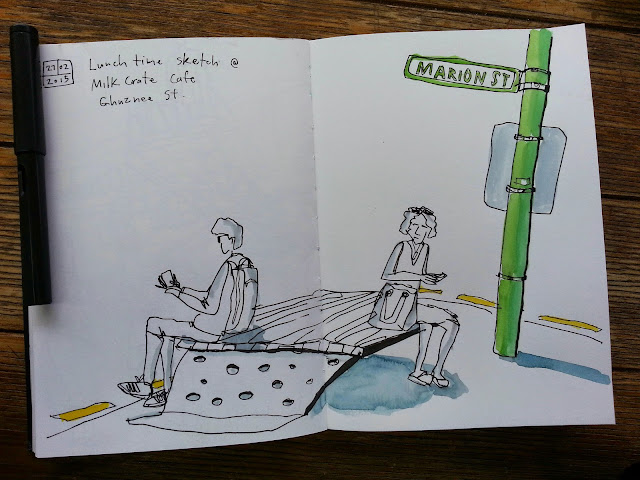 27 02
2015
Lunch time sketch @
Milk Crate Cafe
Ghuznee St.
MARION ST